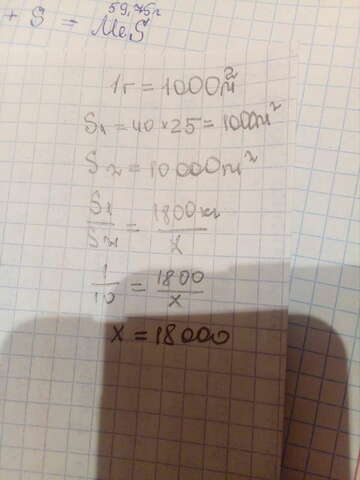 + S = MeS
59,75г
1г = 1000м²
S₁ = 40 × 25 = 1000м²
S₂ = 10 000м²
S₁/S₂ = 1800кг/x
1/10 = 1800/x
x = 18000